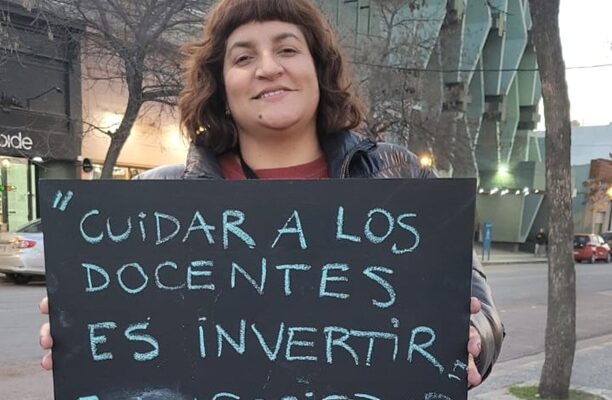 oide
"CUIDAR A LOS
DOCENTES
ES INVERTIR